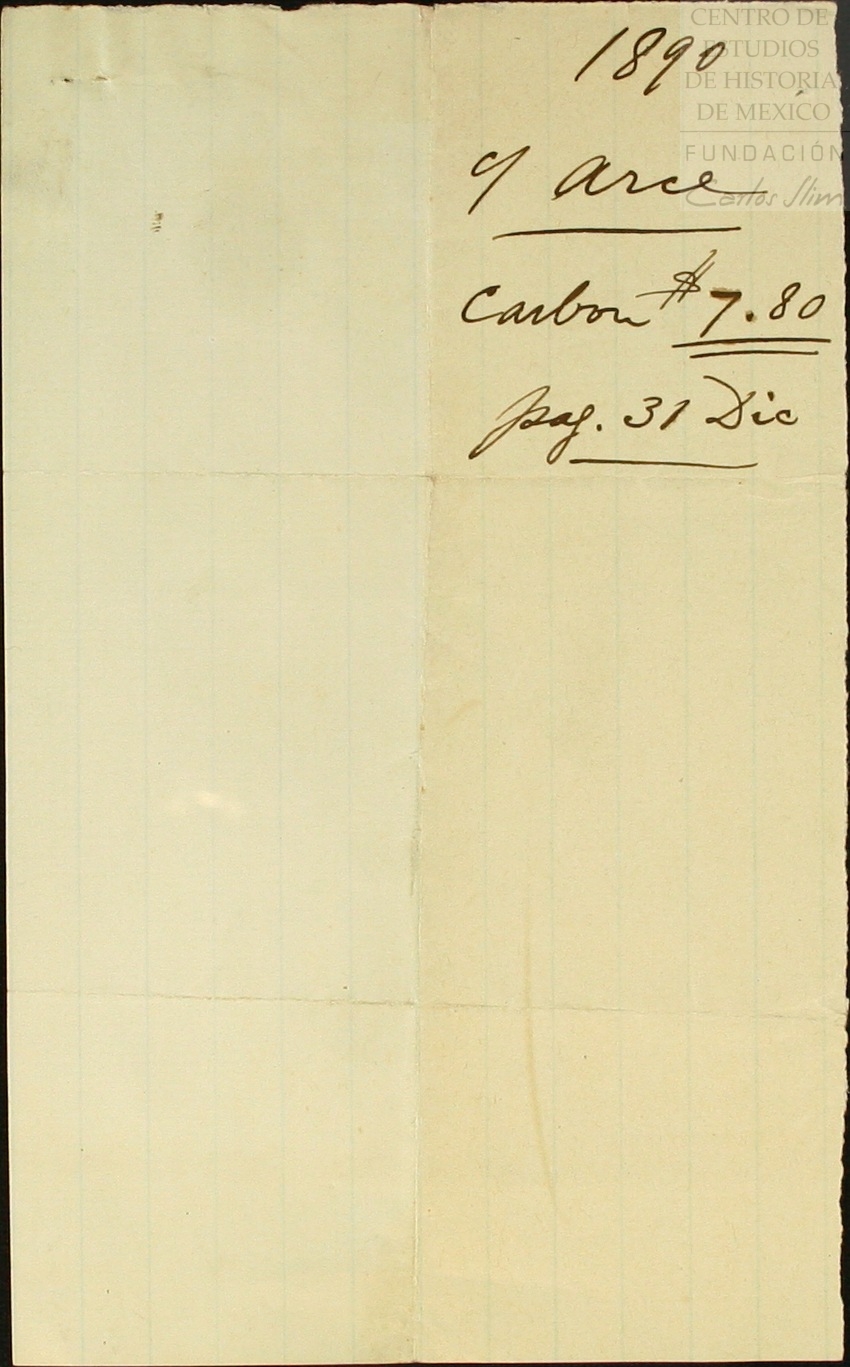 1890
CENTRO DE
ESTUDIOS
DE HISTORIA
DE MEXICO
FUNDACIÓN
Carlos Slim
c/ Arce
Carbon $7.80
pag. 31 Dic